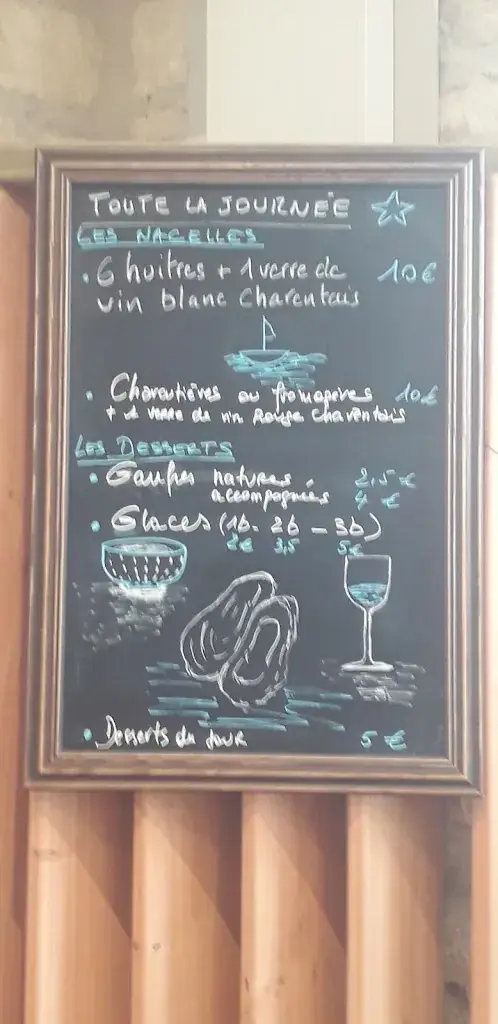 TOUTE LA JOURNEE
LES NACELLES
• 6 huitres + 1 verre de 10€
vin blanc Charentais
• Charcutières ou fromagères 10€
+ 1 verre de vin Rouge Charentais
LES DESSERTS
• Gaufres natures 2,5 €
accompagnées 4 €
• Glaces (1b - 2b - 3b)
2€ 3,5 5€
• Desserts du jour 5 €